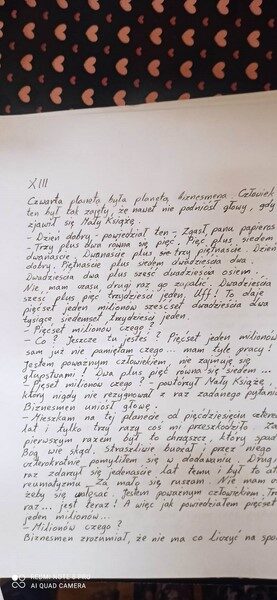 XIII
Czwarta planeta była planetą biznesmena. Człowiek
ten był tak zajęty, że nawet nie podniósł głowy, gdy
zjawił się Mały Książę.
- Dzień dobry - powiedział ten - Zgasł panu papieros
- Trzy plus dwa równa się pięć. Pięć plus siedem
dwanaście. Dwanaście plus trzy piętnaście. Dzień
dobry. Piętnaście plus siedem dwadzieścia dwa.
Dwadzieścia dwa plus sześć dwadzieścia osiem.
Nie mam czasu, drugi raz go zapalić. Dwadzieścia
sześć plus pięć trzydzieści jeden. Uff! To daje
pięćset jeden milionów sześćset dwadzieścia dwa
tysiące siedemset trzydzieści jeden.
- Pięćset milionów czego?
- Co? Jeszcze tu jesteś? Pięćset jeden milionów
sam już nie pamiętam czego... mam tyle pracy!
Jestem poważnym człowiekiem, nie zajmuję się
głupstwami. Dwa plus pięć równa się siedem...
- Pięset milionów czego? - powtórzył Mały Książę,
który nigdy nie rezygnował z raz zadanego pytania
Biznesmen uniósł głowę.
- Mieszkam na tej planecie od pięćdziesięciu czterech
lat i tylko trzy razy coś mi przeszkodziło. Za
pierwszym razem był to chrząszcz, który spadł
Bóg wie skąd. Straszliwie buczał i przez niego
czterokrotnie pomyliłem się w dodawaniu. Drugi
raz zdarzył się jedenaście lat temu i był to atak
reumatyzmu. Za mało się ruszam. Nie mam
żeby się wałęsać. Jestem poważnym człowiekiem.
raz... jest teraz! A więc jak powiedziałem pięćset
jeden milionów...
- Milionów czego?
Biznesmen zrozumiał, że nie ma co liczyć na
REDMI NOTE 8 PRO
AI QUAD CAMERA